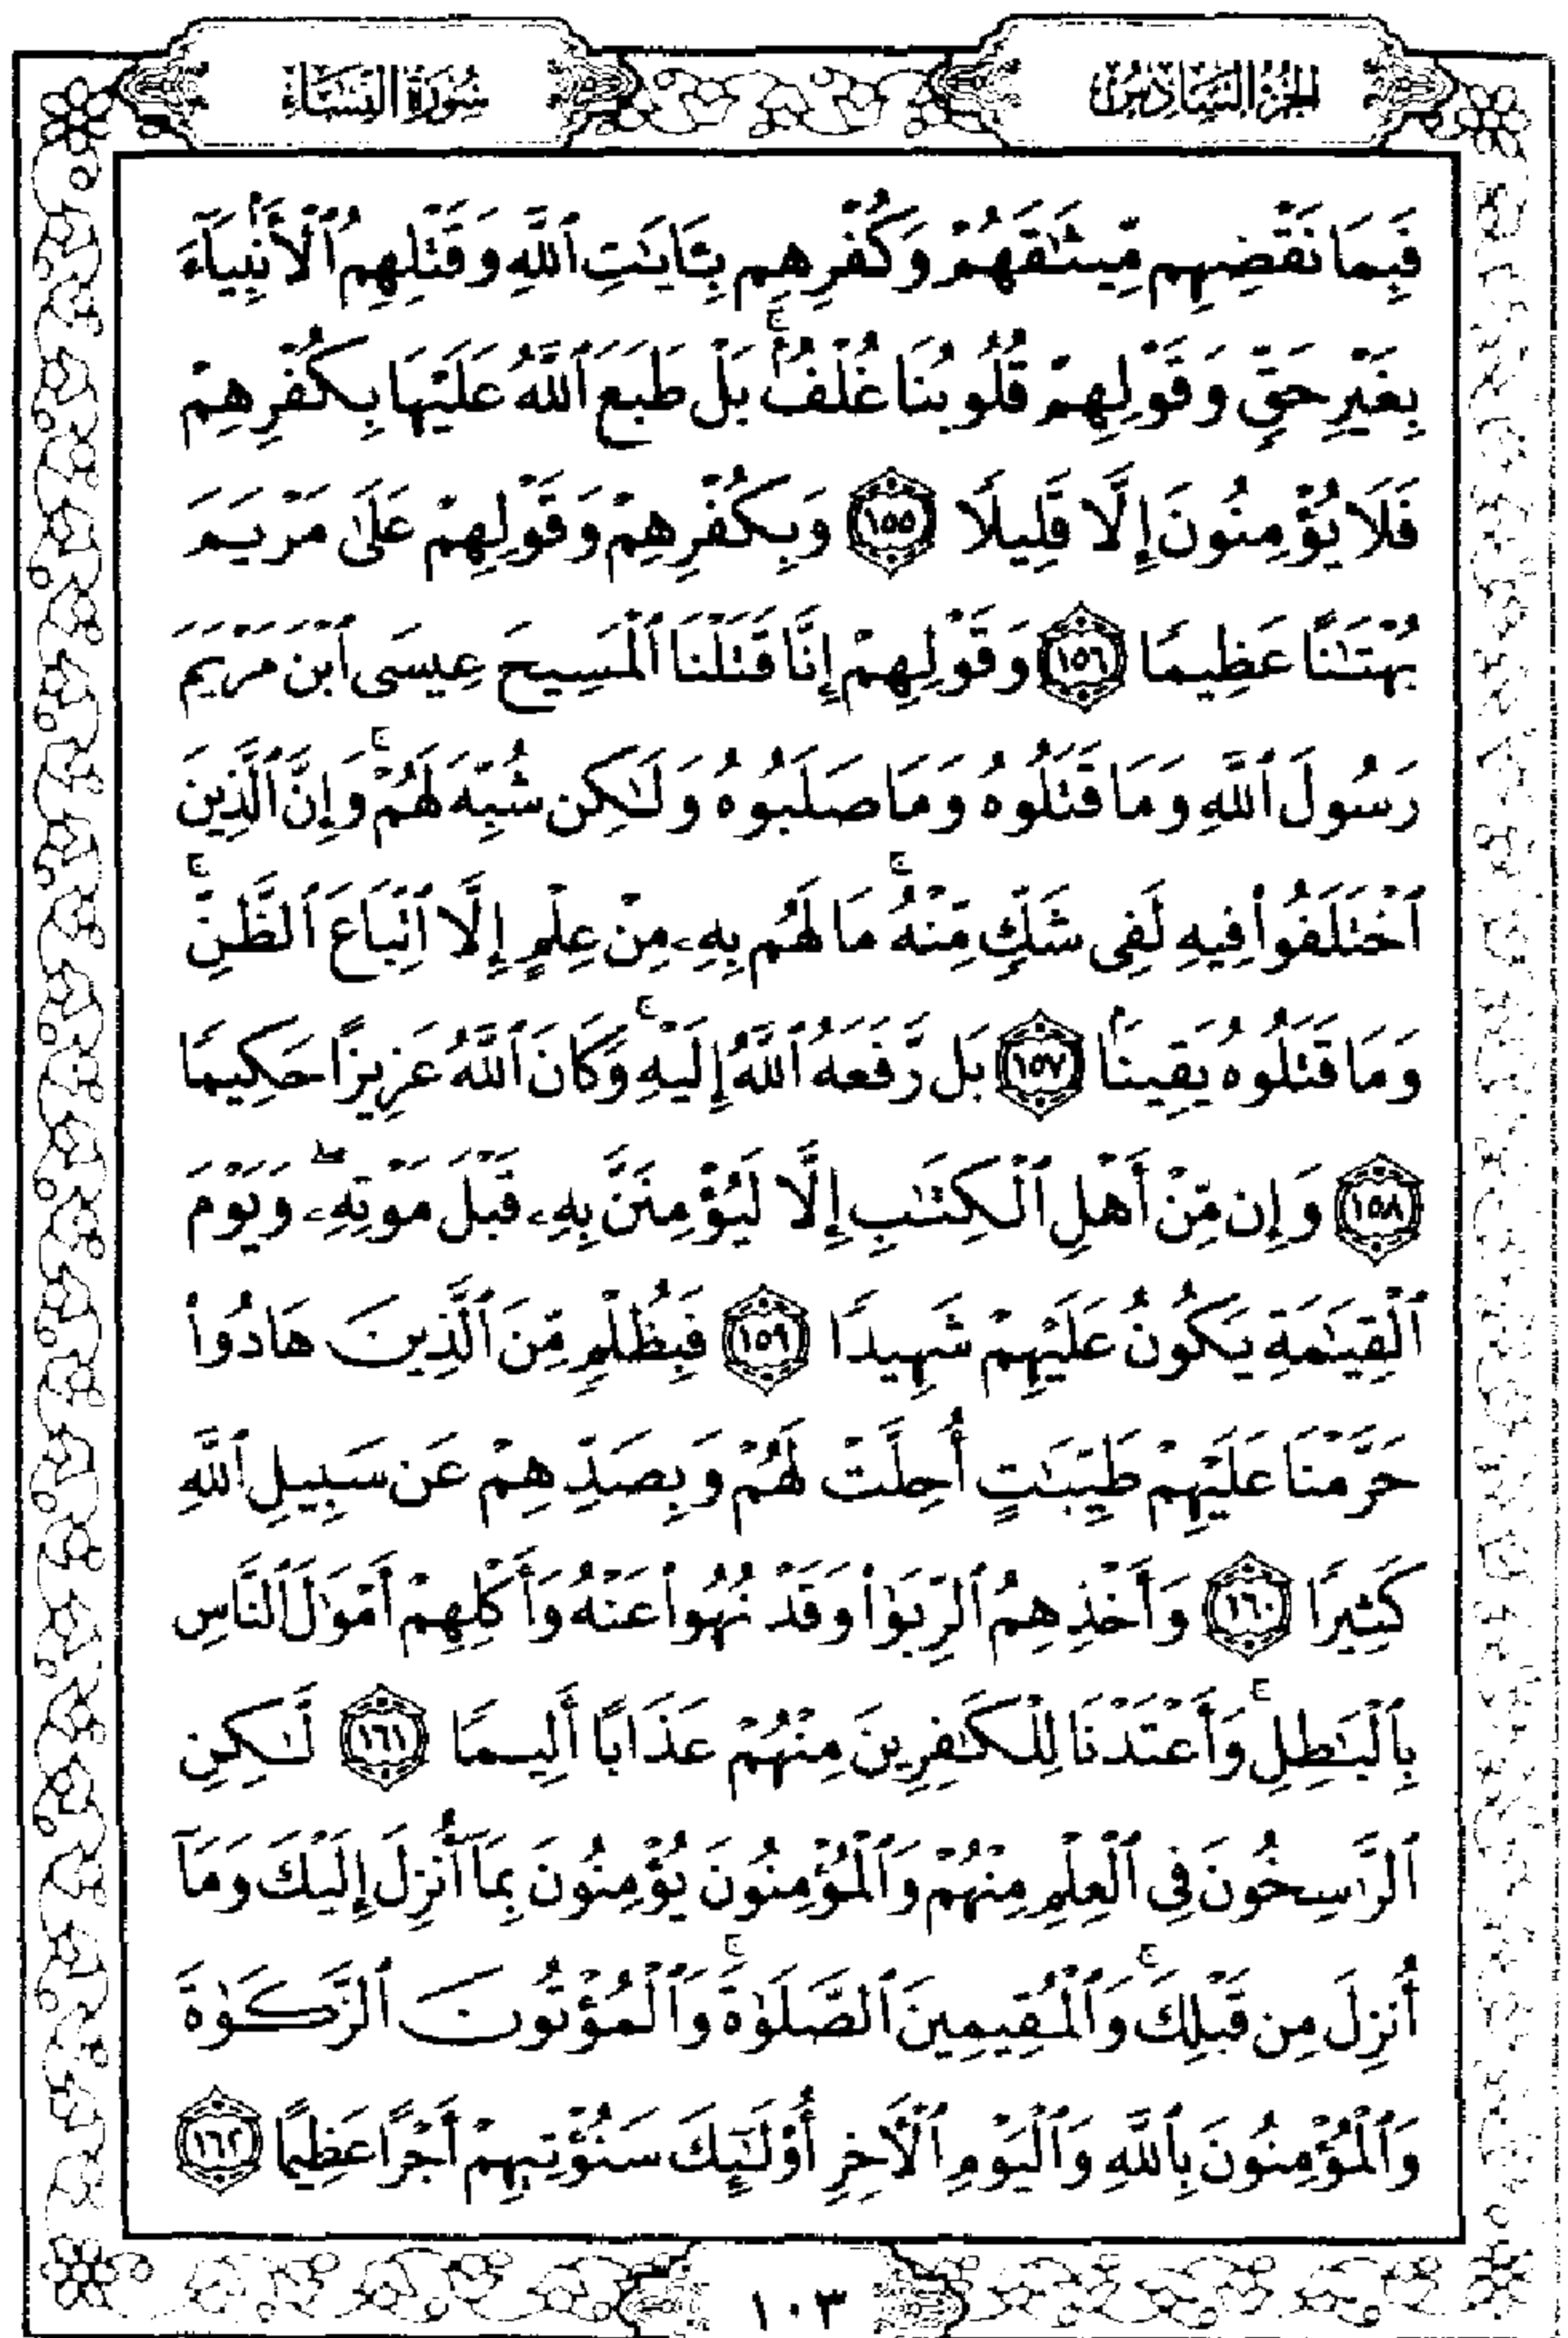 الجزء السادس
سورة النساء
فَبِمَا نَقۡضِهِم مِّيثَٰقَهُمۡ وَكُفۡرِهِم بِـَٔايَٰتِ ٱللَّهِ وَقَتۡلِهِمُ ٱلۡأَنۢبِيَآءَ
بِغَيۡرِ حَقّٖ وَقَوۡلِهِمۡ قُلُوبُنَا غُلۡفُۢۚ بَلۡ طَبَعَ ٱللَّهُ عَلَيۡهَا بِكُفۡرِهِمۡ
فَلَا يُؤۡمِنُونَ إِلَّا قَلِيلٗا ١٥٥ وَبِكُفۡرِهِمۡ وَقَوۡلِهِمۡ عَلَىٰ مَرۡيَمَ
بُهۡتَٰنًا عَظِيمٗا ١٥٦ وَقَوۡلِهِمۡ إِنَّا قَتَلۡنَا ٱلۡمَسِيحَ عِيسَى ٱبۡنَ مَرۡيَمَ
رَسُولَ ٱللَّهِ وَمَا قَتَلُوهُ وَمَا صَلَبُوهُ وَلَٰكِن شُبِّهَ لَهُمۡۚ وَإِنَّ ٱلَّذِينَ
ٱخۡتَلَفُواْ فِيهِ لَفِي شَكّٖ مِّنۡهُۚ مَا لَهُم بِهِۦ مِنۡ عِلۡمٍ إِلَّا ٱتِّبَاعَ ٱلظَّنِّۚ
وَمَا قَتَلُوهُ يَقِينَۢا ١٥٧ بَل رَّفَعَهُ ٱللَّهُ إِلَيۡهِۚ وَكَانَ ٱللَّهُ عَزِيزًا حَكِيمٗا
١٥٨ وَإِن مِّنۡ أَهۡلِ ٱلۡكِتَٰبِ إِلَّا لَيُؤۡمِنَنَّ بِهِۦ قَبۡلَ مَوۡتِهِۦۖ وَيَوۡمَ
ٱلۡقِيَٰمَةِ يَكُونُ عَلَيۡهِمۡ شَهِيدٗا ١٥٩ فَبِظُلۡمٖ مِّنَ ٱلَّذِينَ هَادُواْ
حَرَّمۡنَا عَلَيۡهِمۡ طَيِّبَٰتٍ أُحِلَّتۡ لَهُمۡ وَبِصَدِّهِمۡ عَن سَبِيلِ ٱللَّهِ
كَثِيرٗا ١٦٠ وَأَخۡذِهِمُ ٱلرِّبَوٰاْ وَقَدۡ نُهُواْ عَنۡهُ وَأَكۡلِهِمۡ أَمۡوَٰلَ ٱلنَّاسِ
بِٱلۡبَٰطِلِۚ وَأَعۡتَدۡنَا لِلۡكَٰفِرِينَ مِنۡهُمۡ عَذَابًا أَلِيمٗا ١٦١ لَّٰكِنِ
ٱلرَّٰسِخُونَ فِي ٱلۡعِلۡمِ مِنۡهُمۡ وَٱلۡمُؤۡمِنُونَ يُؤۡمِنُونَ بِمَآ أُنزِلَ إِلَيۡكَ وَمَآ
أُنزِلَ مِن قَبۡلِكَۚ وَٱلۡمُقِيمِينَ ٱلصَّلَوٰةَۚ وَٱلۡمُؤۡتُونَ ٱلزَّكَوٰةَ
وَٱلۡمُؤۡمِنُونَ بِٱللَّهِ وَٱلۡيَوۡمِ ٱلۡأٓخِرِ أُوْلَٰٓئِكَ سَنُؤۡتِيهِمۡ أَجۡرًا عَظِيمًا ١٦٢
١٠٣